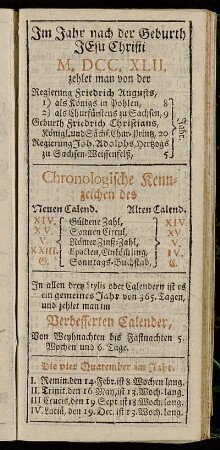 Im Jahr nach der Geburth
JEsu Christi
M. DCC. XLII.
zehlet man von der
Regierung Friedrich Augusts,
1) als Königs in Pohlen, 8
2) als Churfürstens zu Sachsen, 9
Geburth Friedrich Christians,
Königl. und Sächs. Chur-Printz, 20
Regierung Joh. Adolphs, Hertzogs
zu Sachsen-Weissenfelß, 5
Jahr.
Chronologische Kenn-
zeichen des
Neuen Calend. Alten Calend.
XIV. Güldene Zahl, XIV.
XV. Sonnen Circul, XV.
V. Römer Zinß-Zahl, V.
XXIII. Epacten, IV.
G. Sonntags-Buchstab, C.
In allen drey Stylis oder Calendern ist es
ein gemeines Jahr von 365. Tagen,
und zehlet man im
Verbesserten Calender,
Von Weyhnachten bis Fastnachten 5.
Wochen und 6. Tage.
Die vier Quatember im Jahr.
I. Remin. den 14. Febr. ist 8 Wochen lang.
II. Trinit. den 16 May, ist 13. Woch. lang.
III Crucis, den 19. Sept. ist 18 Woch. lang.
IV. Luciä, den 19. Dec. ist 13. Woch. lang.